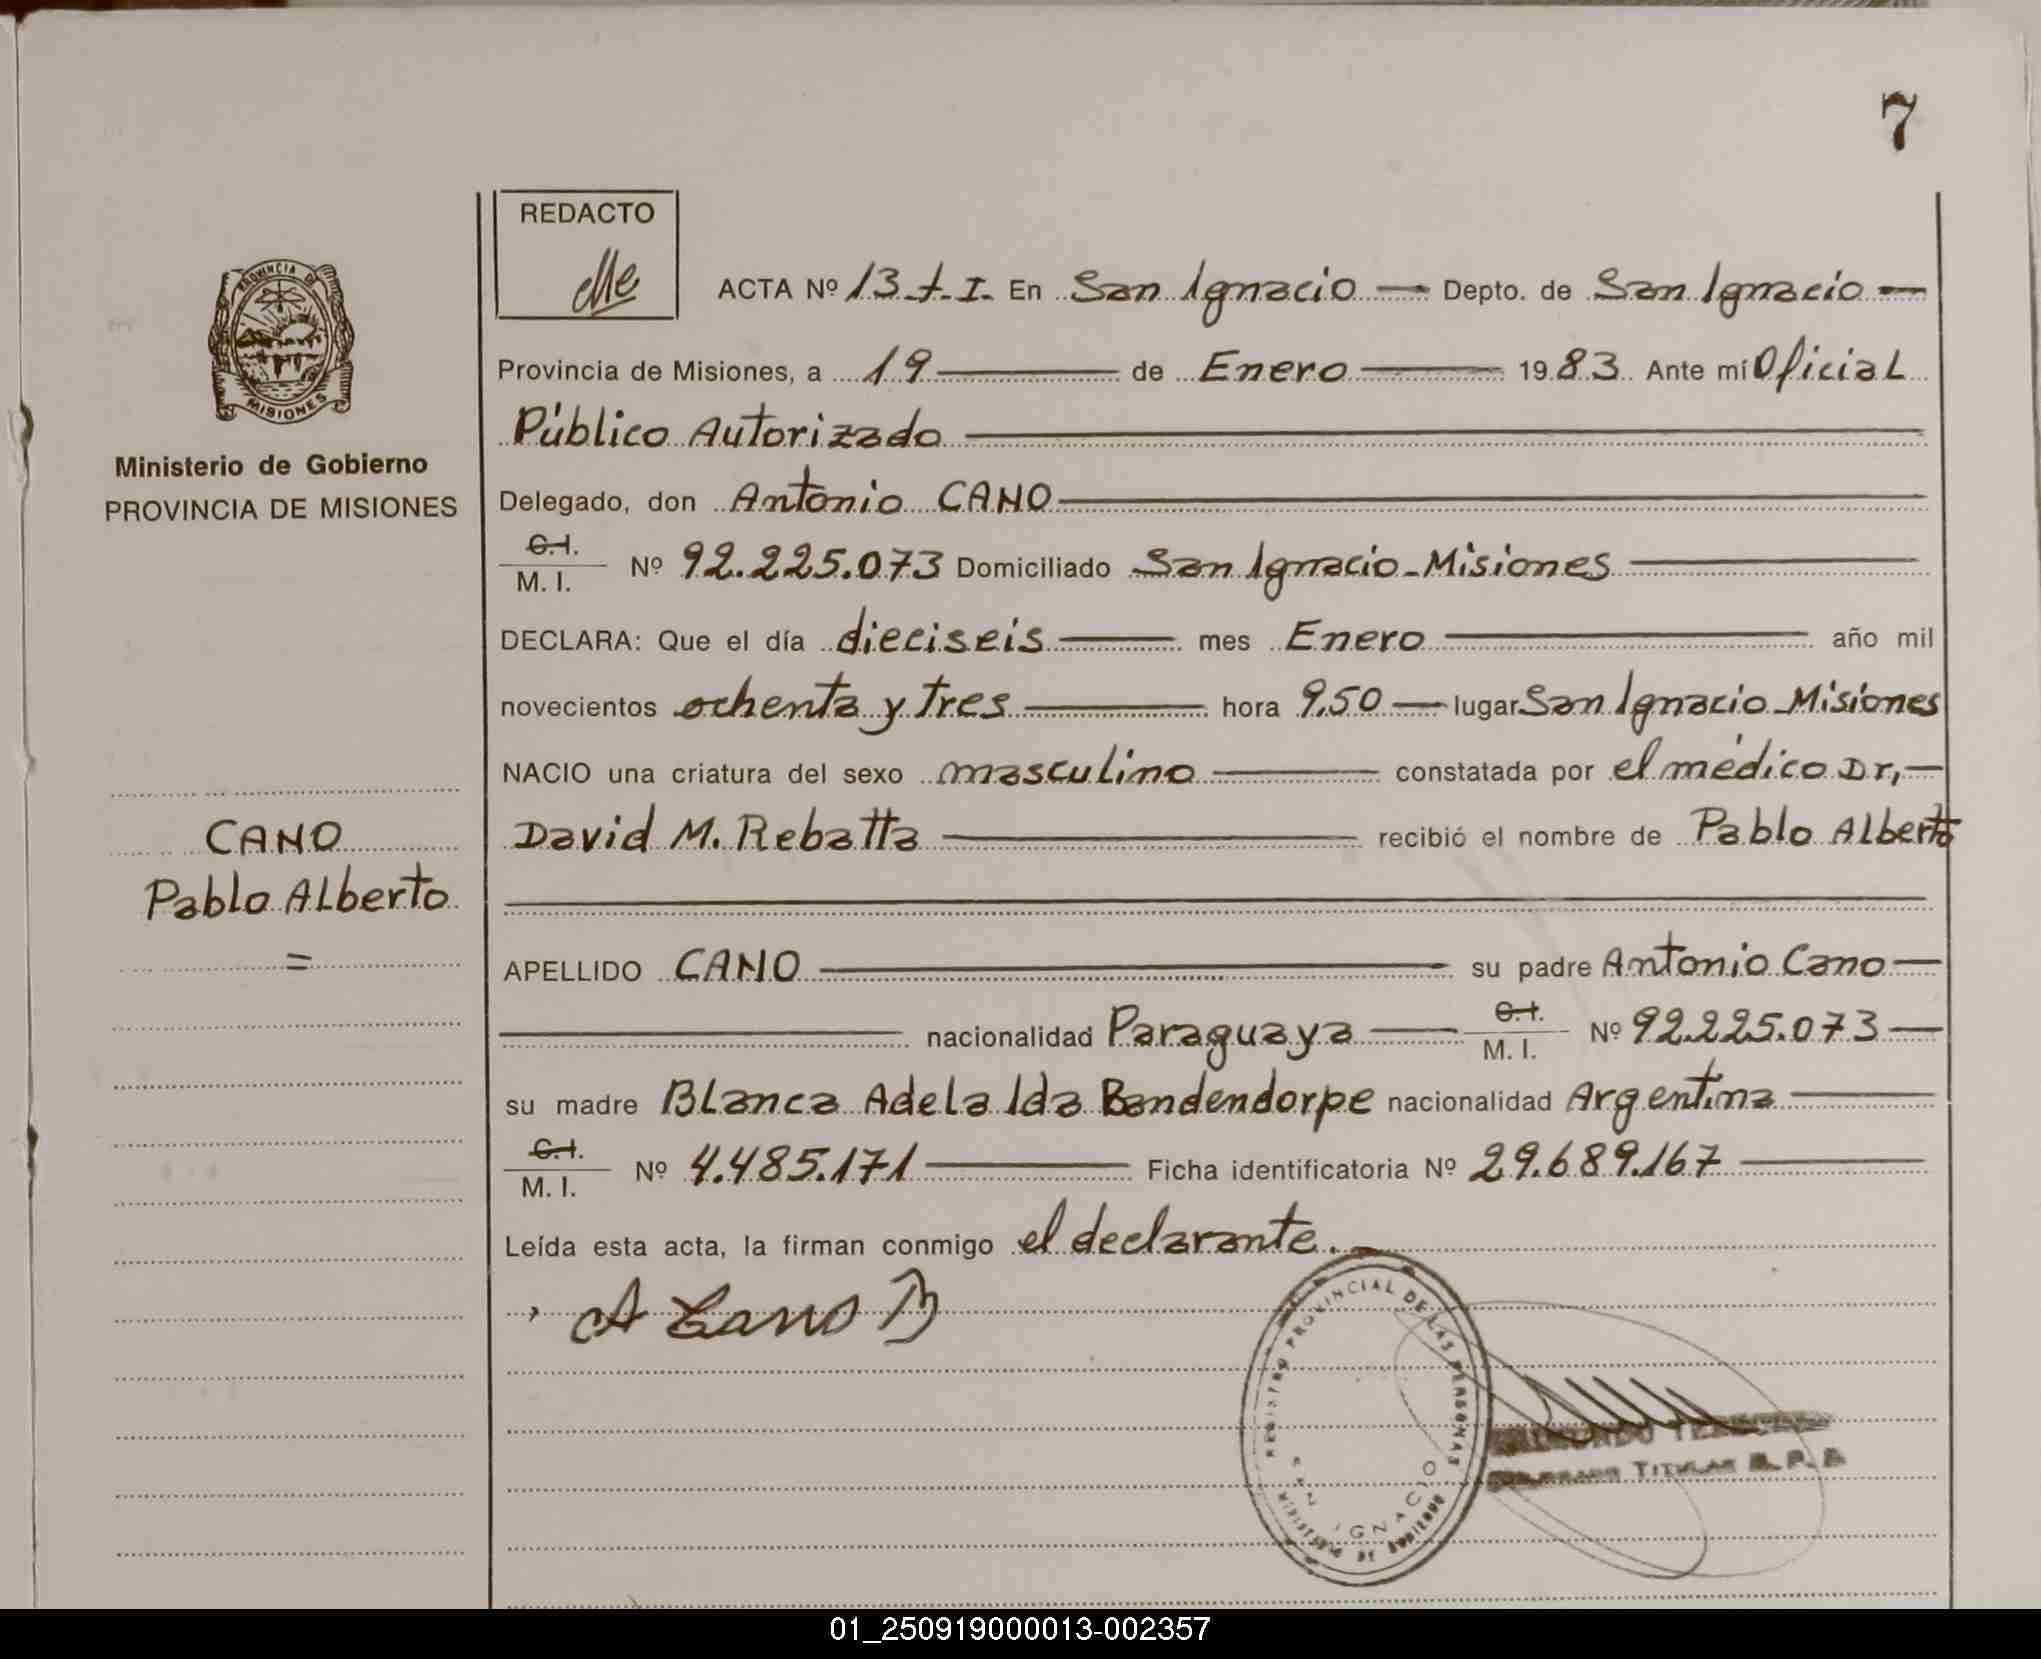 7
REDACTO
PROVINCIA DE
MISIONES
Ministerio de Gobierno
PROVINCIA DE MISIONES
CANO
Pablo Alberto
=
ACTA Nº 13-t-I- En San Ignacio — Depto. de San Ignacio —
Provincia de Misiones, a 19 — de Enero — 1983 Ante mí Oficial
Público Autorizado —
Delegado, don Antonio CANO —
C.I.
M. I. Nº 92.225.073 Domiciliado San Ignacio-Misiones —
DECLARA: Que el día dieciseis — mes Enero — año mil
novecientos ochenta y tres — hora 9,50 — lugar San Ignacio-Misiones
NACIO una criatura del sexo masculino — constatada por el médico Dr, —
David M. Rebatta — recibió el nombre de Pablo Alberto
APELLIDO CANO — su padre Antonio Cano —
— nacionalidad Paraguaya — C.I. M. I. Nº 92.225.073 —
su madre Blanca Adela Ida Bandendorpe nacionalidad Argentina —
C.I.
M. I. Nº 4.485.171 — Ficha identificatoria Nº 29.689.167 —
Leída esta acta, la firman conmigo el declarante.
A Cano B
REGISTRO PROVINCIAL DE LAS PERSONAS
SAN IGNACIO
MINISTERIO DE GOBIERNO
TITULAR R. P.
01_250919000013-002357